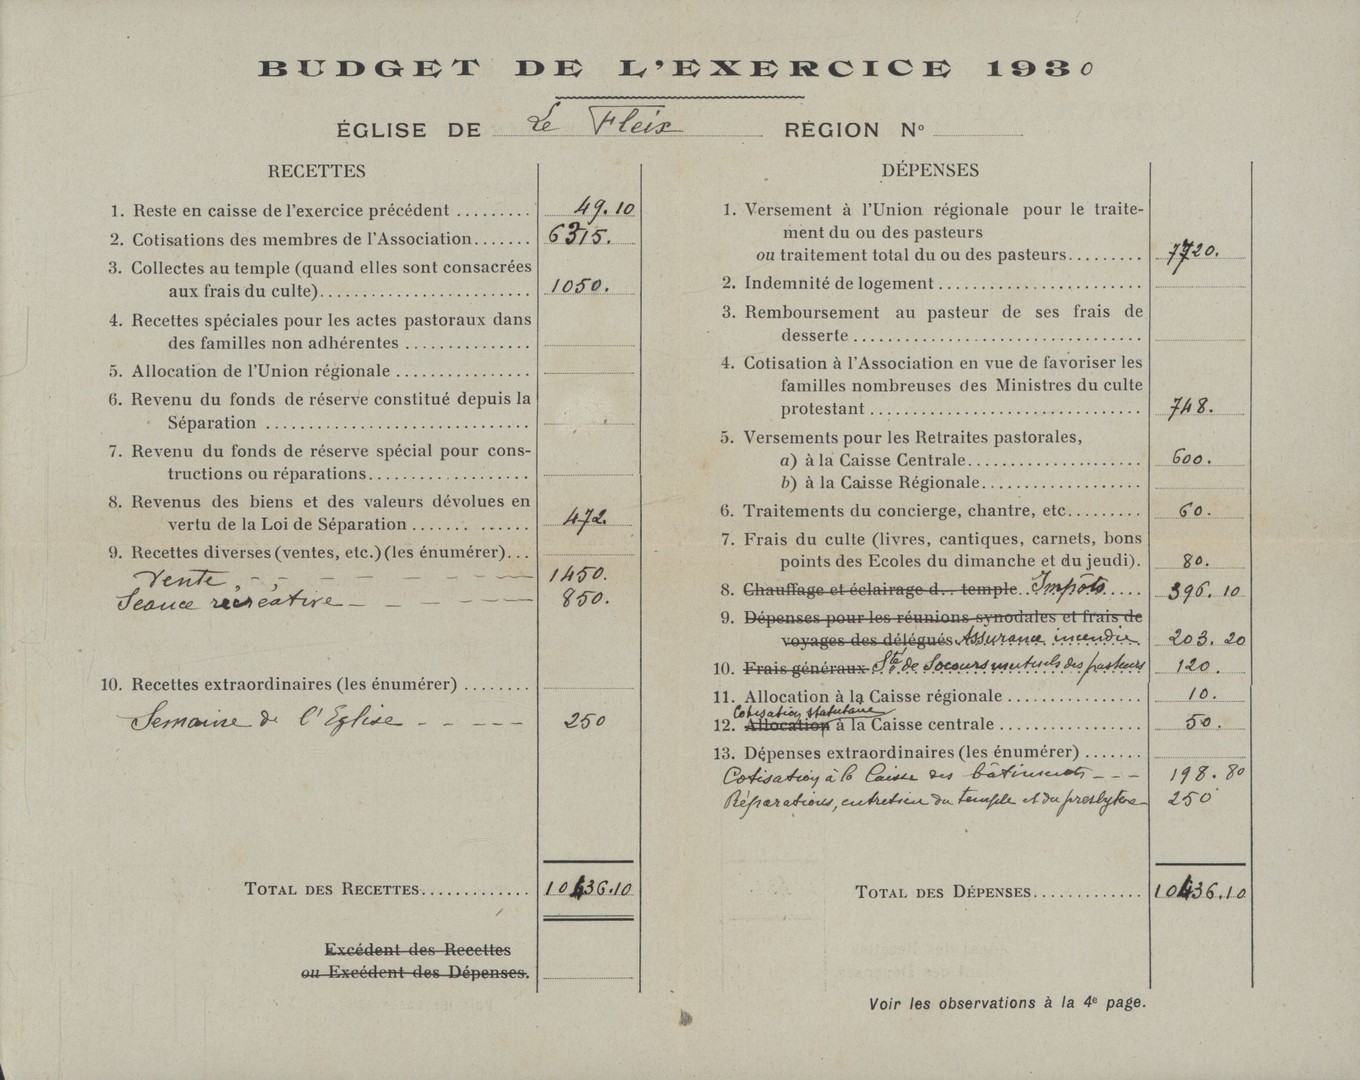 BUDGET DE L'EXERCICE 1930
ÉGLISE DE Le Fleix RÉGION Nº
RECETTES
1. Reste en caisse de l'exercice précédent ......... 49.10
2. Cotisations des membres de l'Association....... 6315.
3. Collectes au temple (quand elles sont consacrées
aux frais du culte)........................ 1050.
4. Recettes spéciales pour les actes pastoraux dans
des familles non adhérentes ..............
5. Allocation de l'Union régionale ...............
6. Revenu du fonds de réserve constitué depuis la
Séparation .............................
7. Revenu du fonds de réserve spécial pour cons-
tructions ou réparations..................
8. Revenus des biens et des valeurs dévolues en
vertu de la Loi de Séparation ............ 472.
9. Recettes diverses (ventes, etc.) (les énumérer)...
Vente - - - - - - 1450.
Séance récréative - - - - - 850.
10. Recettes extraordinaires (les énumérer) ........
Semaine de l'Eglise - - - - 250
TOTAL DES RECETTES............ 10436.10
Excédent des Recettes
ou Excédent des Dépenses.
DÉPENSES
1. Versement à l'Union régionale pour le traite-
ment du ou des pasteurs
ou traitement total du ou des pasteurs......... 7720.
2. Indemnité de logement .......................
3. Remboursement au pasteur de ses frais de
desserte ................................
4. Cotisation à l'Association en vue de favoriser les
familles nombreuses des Ministres du culte
protestant .............................. 748.
5. Versements pour les Retraites pastorales,
a) à la Caisse Centrale................... 600.
b) à la Caisse Régionale..................
6. Traitements du concierge, chantre, etc......... 60.
7. Frais du culte (livres, cantiques, carnets, bons
points des Ecoles du dimanche et du jeudi). 80.
8. Chauffage et éclairage d... temple.. Impôts..... 396.10
9. Dépenses pour les réunions synodales et frais de
voyages des délégués Assurance incendie 203.20
10. Frais généraux Sté de Secours mutuels des pasteurs 120.
11. Allocation à la Caisse régionale ............... 10.
Cotisation statutaire
12. Allocation à la Caisse centrale ................ 50.
13. Dépenses extraordinaires (les énumérer) .......
Cotisation à la Caisse des bâtiments - - - 198.80
Réparations, entretien du temple et du presbytère 250
TOTAL DES DÉPENSES............. 10436.10
Voir les observations à la 4e page.